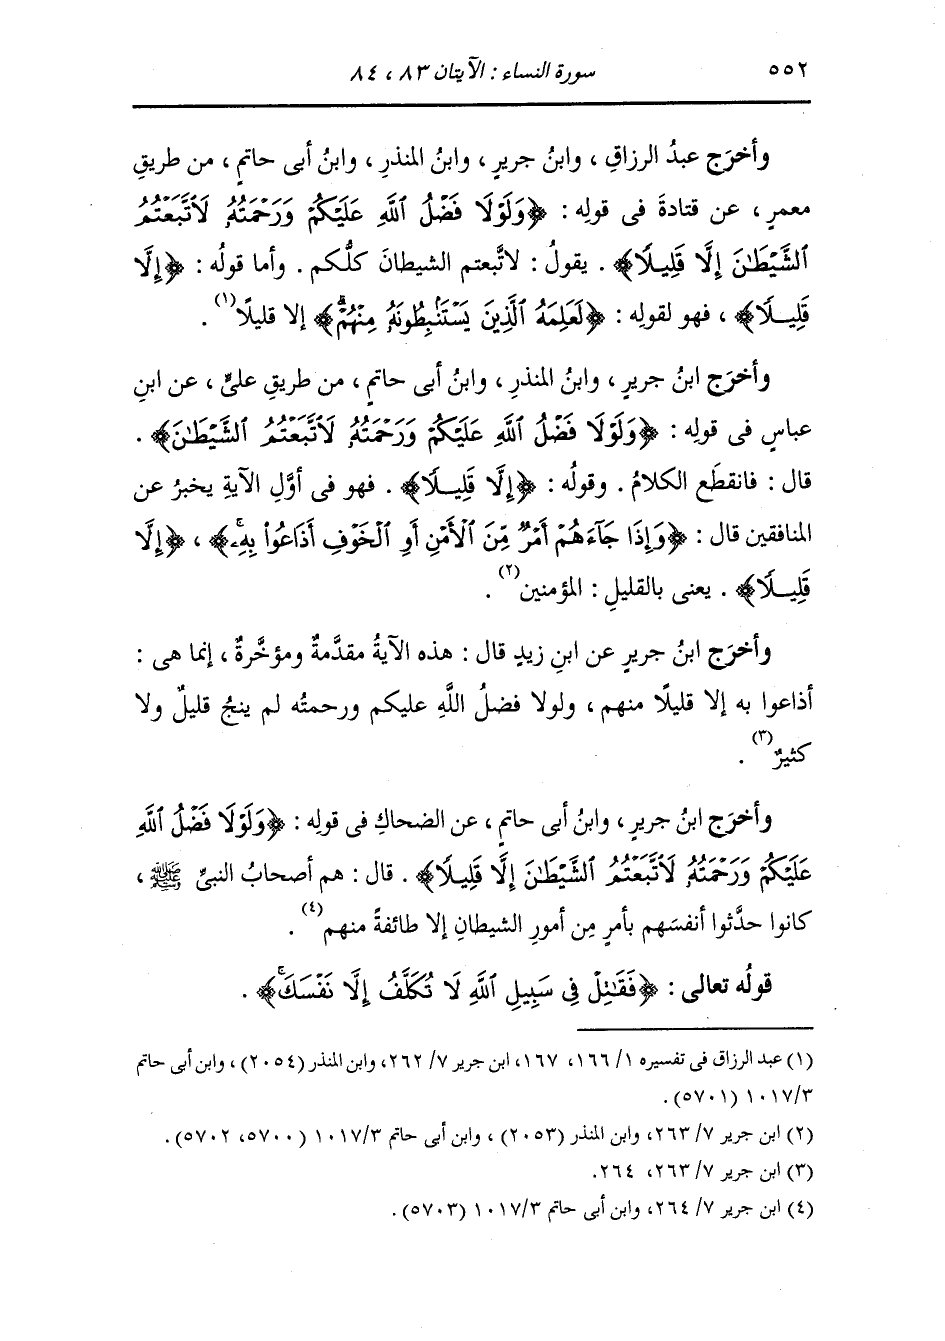 ٥٥٢ سورة النساء : الآيتان ٨٣ ، ٨٤
وأخرَج عبدُ الرزاقِ ، وابنُ جريرٍ ، وابنُ المنذرِ ، وابنُ أبى حاتمٍ ، من طريقِ
معمرٍ ، عن قتادةَ فى قولِه : ﴿وَلَوْلَا فَضْلُ ٱللَّهِ عَلَيْكُمْ وَرَحْمَتُهُۥ لَٱتَّبَعْتُمُ
ٱلشَّيْطَٰنَ إِلَّا قَلِيلًا﴾ . يقولُ : لاتَّبعتم الشيطانَ كلُّكم . وأما قولُه : ﴿إِلَّا
قَلِيلًا﴾ ، فهو لقولِه : ﴿لَعَلِمَهُ ٱلَّذِينَ يَسْتَنۢبِطُونَهُۥ مِنْهُمْ ۗ﴾ إلا قليلًا(١) .
وأخرَج ابنُ جريرٍ ، وابنُ المنذرِ ، وابنُ أبى حاتمٍ ، من طريقِ علىٍّ ، عن ابنِ
عباسٍ فى قولِه : ﴿وَلَوْلَا فَضْلُ ٱللَّهِ عَلَيْكُمْ وَرَحْمَتُهُۥ لَٱتَّبَعْتُمُ ٱلشَّيْطَٰنَ﴾ .
قال : فانقطَع الكلامُ . وقولُه : ﴿إِلَّا قَلِيلًا﴾ . فهو فى أوَّلِ الآيةِ يخبرُ عن
المنافقين قال : ﴿وَإِذَا جَآءَهُمْ أَمْرٌ مِّنَ ٱلْأَمْنِ أَوِ ٱلْخَوْفِ أَذَاعُوا۟ بِهِۦ ۖ﴾ ، ﴿إِلَّا
قَلِيلًا﴾ . يعنى بالقليلِ : المؤمنين(٢) .
وأخرَج ابنُ جريرٍ عن ابنِ زيدٍ قال : هذه الآيةُ مقدَّمةٌ ومؤخَّرةٌ ، إنما هى :
أذاعوا به إلا قليلًا منهم ، ولولا فضلُ اللَّهِ عليكم ورحمتُه لم ينجُ قليلٌ ولا
كثيرٌ(٣) .
وأخرَج ابنُ جريرٍ ، وابنُ أبى حاتمٍ ، عن الضحاكِ فى قولِه : ﴿وَلَوْلَا فَضْلُ ٱللَّهِ
عَلَيْكُمْ وَرَحْمَتُهُۥ لَٱتَّبَعْتُمُ ٱلشَّيْطَٰنَ إِلَّا قَلِيلًا﴾ . قال : هم أصحابُ النبىِّ ﷺ ،
كانوا حدَّثوا أنفسَهم بأمرٍ مِن أمورِ الشيطانِ إلا طائفةً منهم(٤) .
قولُه تعالى : ﴿فَقَٰتِلْ فِى سَبِيلِ ٱللَّهِ لَا تُكَلَّفُ إِلَّا نَفْسَكَ ۚ﴾ .
(١) عبد الرزاق فى تفسيره ١/ ١٦٦، ١٦٧، ابن جرير ٧/ ٢٦٢، وابن المنذر (٢٠٥٤) ، وابن أبى حاتم
٣/ ١٠١٧ (٥٧٠١) .
(٢) ابن جرير ٧/ ٢٦٣، وابن المنذر (٢٠٥٣) ، وابن أبى حاتم ٣/ ١٠١٧ (٥٧٠٠، ٥٧٠٢) .
(٣) ابن جرير ٧/ ٢٦٣، ٢٦٤.
(٤) ابن جرير ٧/ ٢٦٤، وابن أبى حاتم ٣/ ١٠١٧ (٥٧٠٣) .